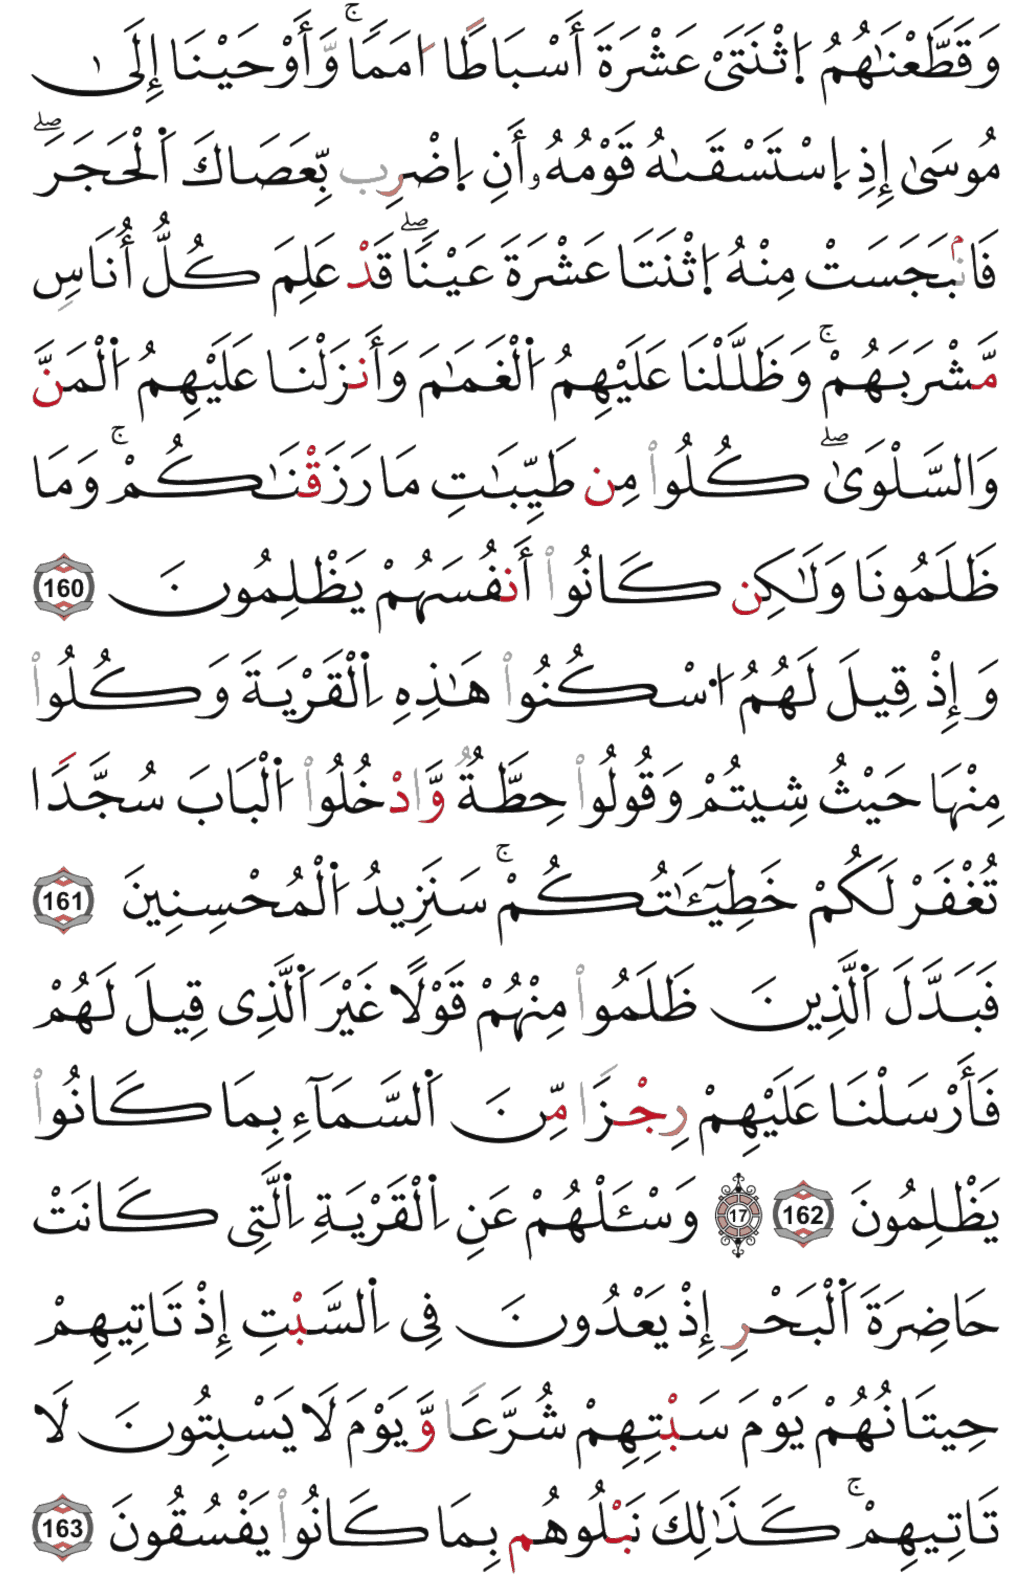 وَقَطَّعْنَٰهُمُ اُ۪ثْنَتَىْ عَشْرَةَ أَسْبَاطًا ا۟مَمًاۚ وَّأَوْحَيْنَا إِلَىٰ
مُوسَىٰ إِذِ اِ۪سْتَسْقَىٰهُ قَوْمُهُۥ أَنِ اِ۪ضْرِب بِّعَصَاكَ اَ۬لْحَجَرَۖ
فَانۢبَجَسَتْ مِنْهُ اُ۪ثْنَتَا عَشْرَةَ عَيْنًاۖ قَدْ عَلِمَ كُلُّ أُنَاسٍ
مَّشْرَبَهُمْۚ وَظَلَّلْنَا عَلَيْهِمُ اُ۬لْغَمَٰمَ وَأَنزَلْنَا عَلَيْهِمُ اُ۬لْمَنَّ
وَالسَّلْوَىٰۖ كُلُوا۟ مِن طَيِّبَٰتِ مَا رَزَقْنَٰكُمْۚ وَمَا
ظَلَمُونَا وَلَٰكِن كَانُوا۟ أَنفُسَهُمْ يَظْلِمُونَ 160
وَإِذْ قِيلَ لَهُمُ اُ۟سْكُنُوا۟ هَٰذِهِ اِ۬لْقَرْيَةَ وَكُلُوا۟
مِنْهَا حَيْثُ شِيتُمْ وَقُولُوا۟ حِطَّةٌ وَّادْخُلُوا۟ اُ۬لْبَابَ سُجَّدًا
تُغْفَرْ لَكُمْ خَطِيٓـَٰٔتُكُمْۚ سَنَزِيدُ اُ۬لْمُحْسِنِينَ 161
فَبَدَّلَ اَ۬لَّذِينَ ظَلَمُوا۟ مِنْهُمْ قَوْلًا غَيْرَ اَ۬لَّذِى قِيلَ لَهُمْ
فَأَرْسَلْنَا عَلَيْهِمْ رِجْزًا مِّنَ اَ۬لسَّمَآءِ بِمَا كَانُوا۟
يَظْلِمُونَ 162 17 وَسْـَٔلْهُمْ عَنِ اِ۬لْقَرْيَةِ اِ۬لَّتِى كَانَتْ
حَاضِرَةَ اَ۬لْبَحْرِ إِذْ يَعْدُونَ فِى اِ۬لسَّبْتِ إِذْ تَاتِيهِمْ
حِيتَانُهُمْ يَوْمَ سَبْتِهِمْ شُرَّعًا وَّيَوْمَ لَا يَسْبِتُونَ لَا
تَاتِيهِمْۚ كَذَٰلِكَ نَبْلُوهُم بِمَا كَانُوا۟ يَفْسُقُونَ 163